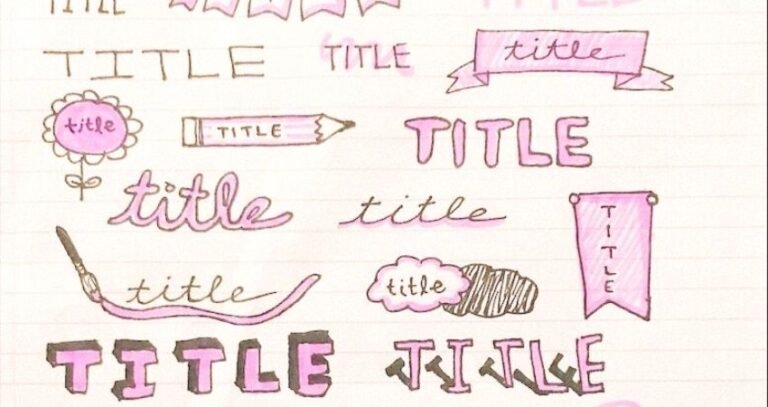 TITLE
TITLE TITLE title
title TITLE TITLE
title title TITLE
title title
TITLE TITLE